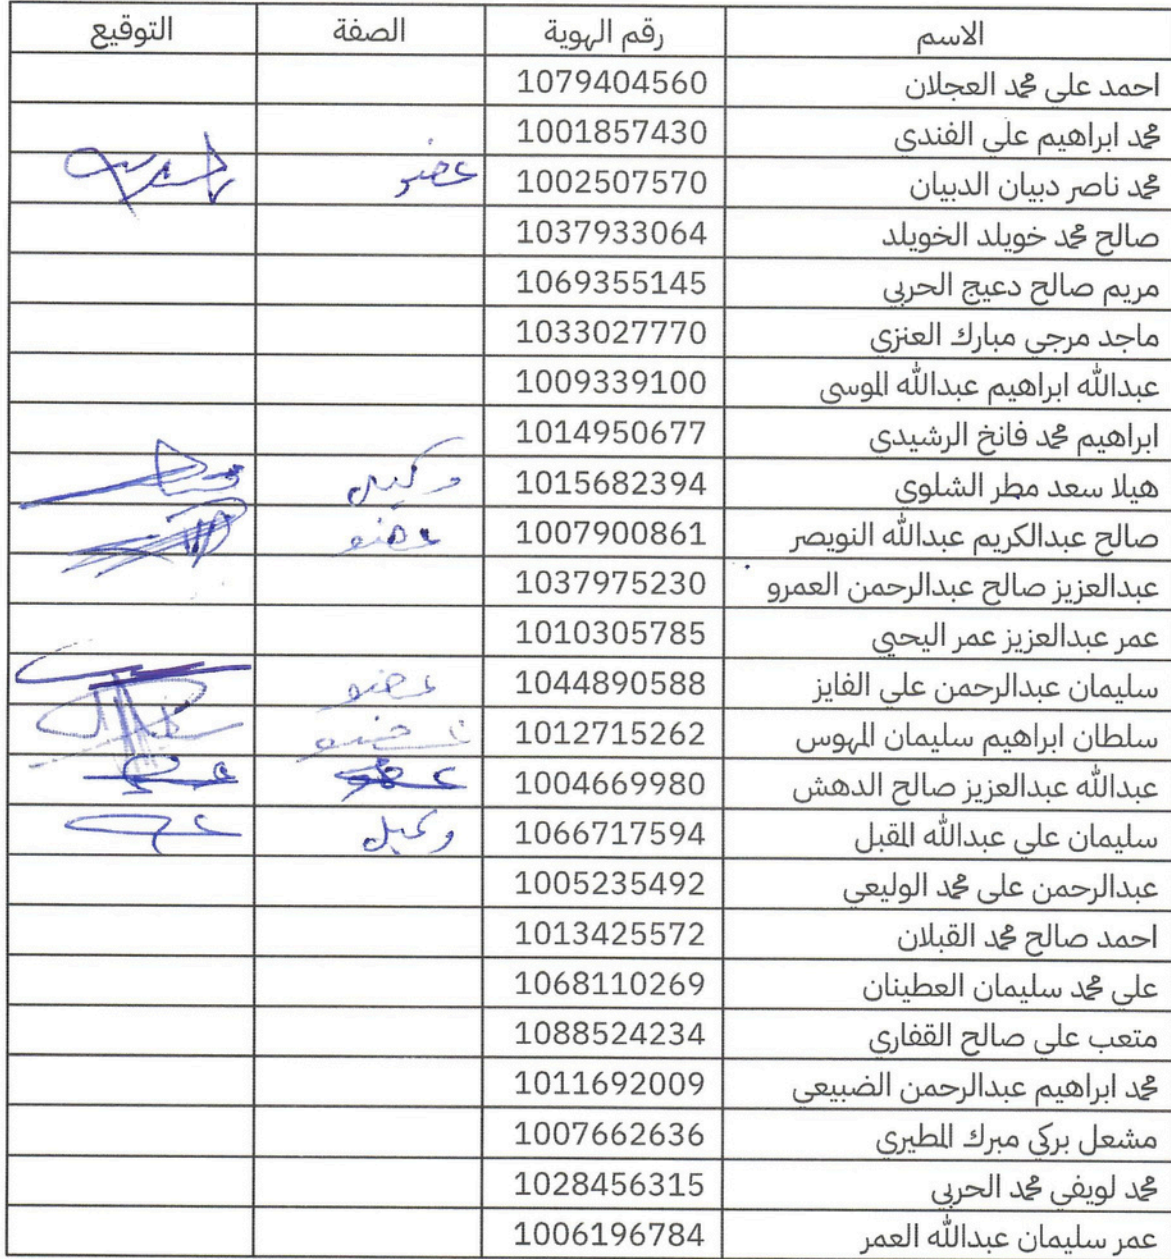 الاسم رقم الهوية الصفة التوقيع
احمد علي محمد العجلان 1079404560
محمد ابراهيم علي الفندي 1001857430
محمد ناصر دبيان الدبيان 1002507570 عضو
صالح محمد خويلد الخويلد 1037933064
مريم صالح دعيج الحربي 1069355145
ماجد مرجي مبارك العنزي 1033027770
عبدالله ابراهيم عبدالله الموسى 1009339100
ابراهيم محمد فانخ الرشيدي 1014950677
هيلا سعد مطر الشلوي 1015682394 وكيل
صالح عبدالكريم عبدالله النويصر 1007900861 عضو
عبدالعزيز صالح عبدالرحمن العمرو 1037975230
عمر عبدالعزيز عمر اليحيى 1010305785
سليمان عبدالرحمن علي الفايز 1044890588 عضو
سلطان ابراهيم سليمان المهوس 1012715262 عضو
عبدالله عبدالعزيز صالح الدهش 1004669980 عضو
سليمان علي عبدالله المقبل 1066717594 وكيل
عبدالرحمن علي محمد الوليعي 1005235492
احمد صالح محمد القبلان 1013425572
علي محمد سليمان العطينان 1068110269
متعب علي صالح القفاري 1088524234
محمد ابراهيم عبدالرحمن الضبيعي 1011692009
مشعل بركي مبرك المطيري 1007662636
محمد لويفي محمد الحربي 1028456315
عمر سليمان عبدالله العمر 1006196784